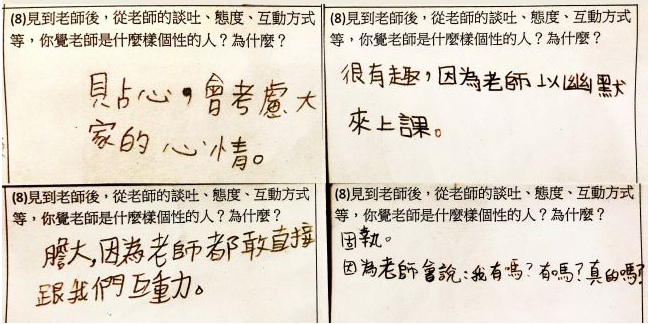 (8)見到老師後，從老師的談吐、態度、互動方式
等，你覺老師是什麼樣個性的人？為什麼？
見占心，會考慮大
家的心情。
(8)見到老師後，從老師的談吐、態度、互動方式
等，你覺老師是什麼樣個性的人？為什麼？
很有趣，因為老師以幽默
來上課。
(8)見到老師後，從老師的談吐、態度、互動方式
等，你覺老師是什麼樣個性的人？為什麼？
膽大,因為老師都敢直接
跟我們互動力。
(8)見到老師後，從老師的談吐、態度、互動方式
等，你覺老師是什麼樣個性的人？為什麼？
固執。
因為老師會說：我有嗎？有嗎？真的嗎？